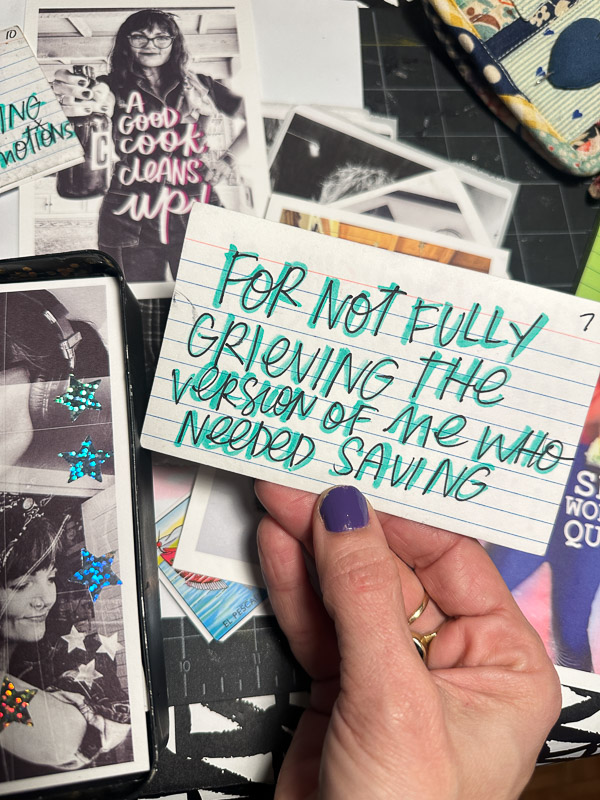 10
ING
MOTIONS
A
GOOD
COOK
CLEANS
UP!
7
FOR NOT FULLY
GRIEVING THE
VERSION OF ME WHO
NEEDED SAVING
WOR
QU
EL PESCA
10
11